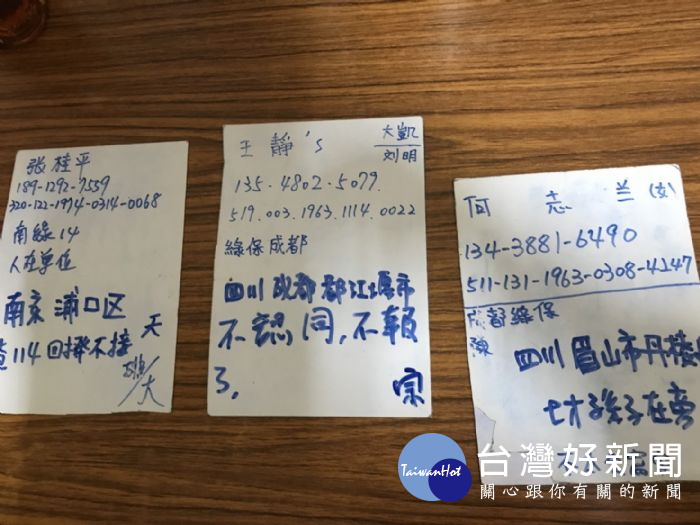 张桂平
189-1292-7559
320-122-1974-0314-0068
南線14
人在單位
南京浦口区
天
查114回撥不接
王靜's
大凱
刘明
135.4802.5079.
519.003.1963.1114.0022
線保成都
四川成都都江堰市
不認同,不報
了.
宗
何志兰(女)
134-3881-6490
511-131-1963-0308-4247
成都線保
陳
四川眉山市丹棱
七才孫子在旁
TaiwanHot
台灣好新聞
關心跟你有關的新聞